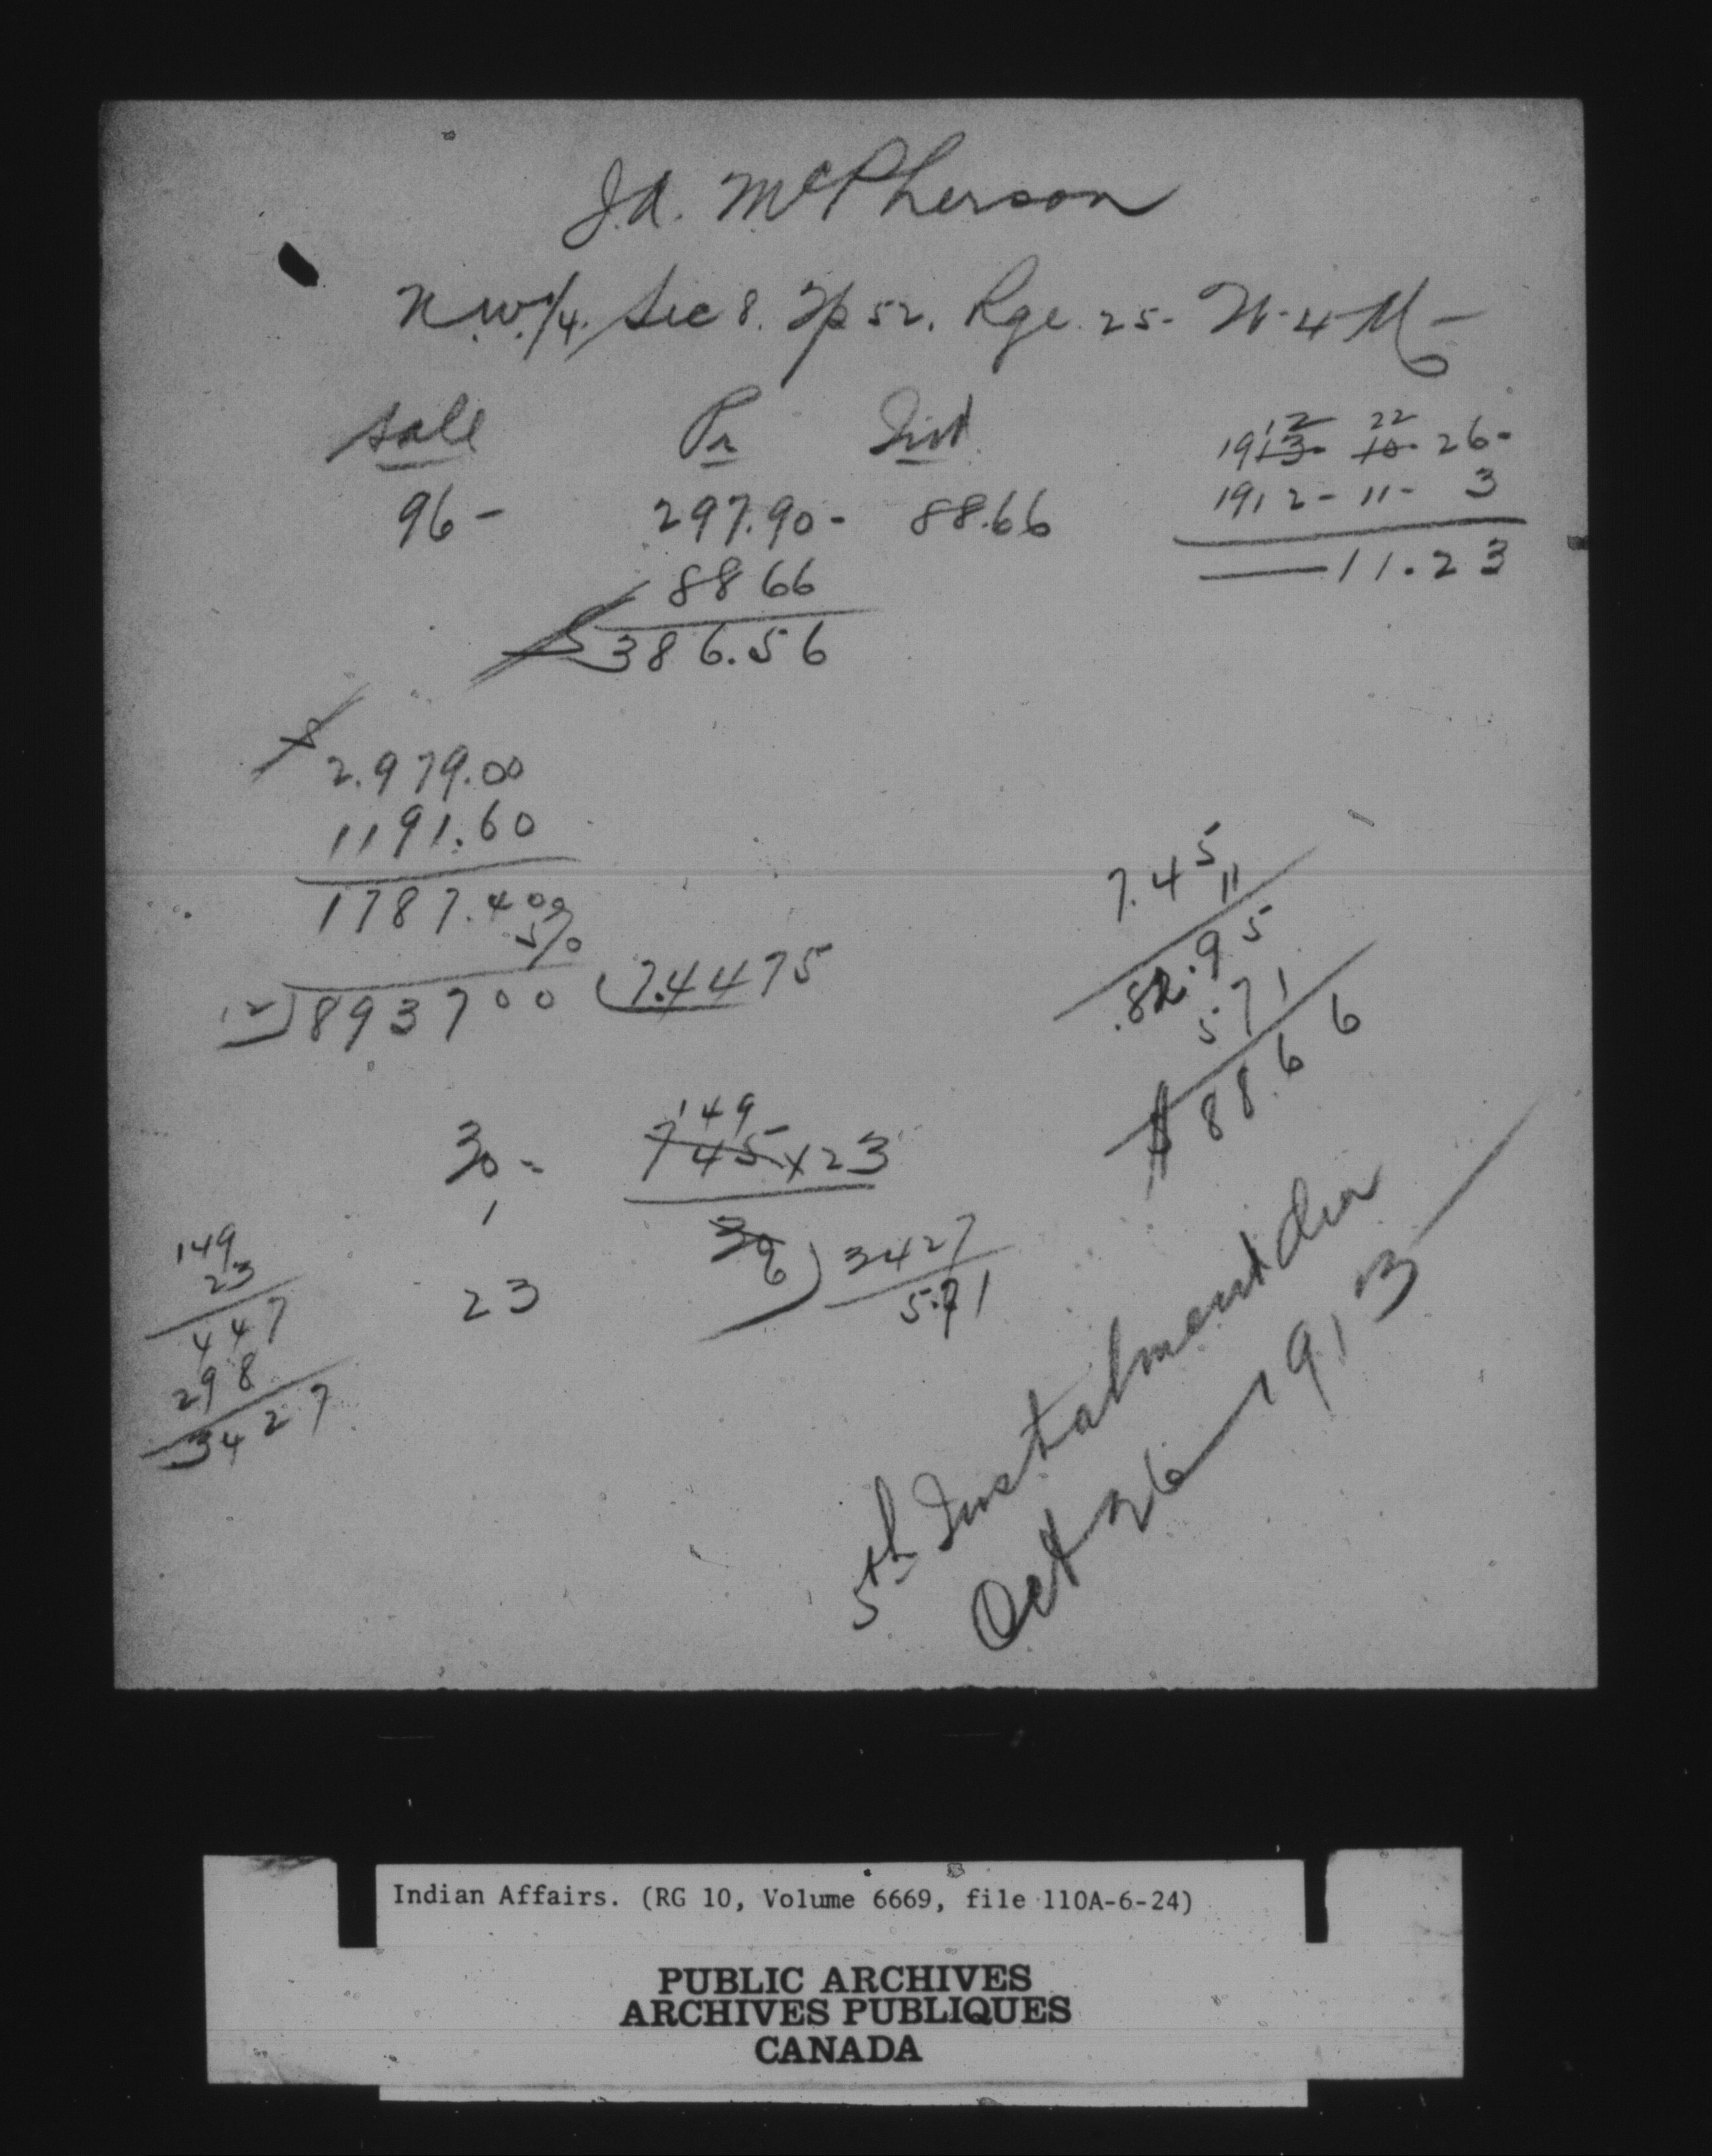 J.A. McPherson
N.W.1/4. Sec 8. Tp 52. Rge. 25- W. 4 M-
Sale Pr Int
96- 297.90- 88.66
88 66
$386.56
12 22
1913- 10- 26-
1912- 11- 3
11.23
$
2.979.00
1191.60
1787.400
5%
12)893700(7.4475
7.45
11
82.95
571
$88.66
30 =
1
23
149
745x23
30
6)3427
5.71
149
23
447
298
3427
5th Instalment due
Oct 26 1913
Indian Affairs. (RG 10, Volume 6669, file 110A-6-24)
PUBLIC ARCHIVES
ARCHIVES PUBLIQUES
CANADA